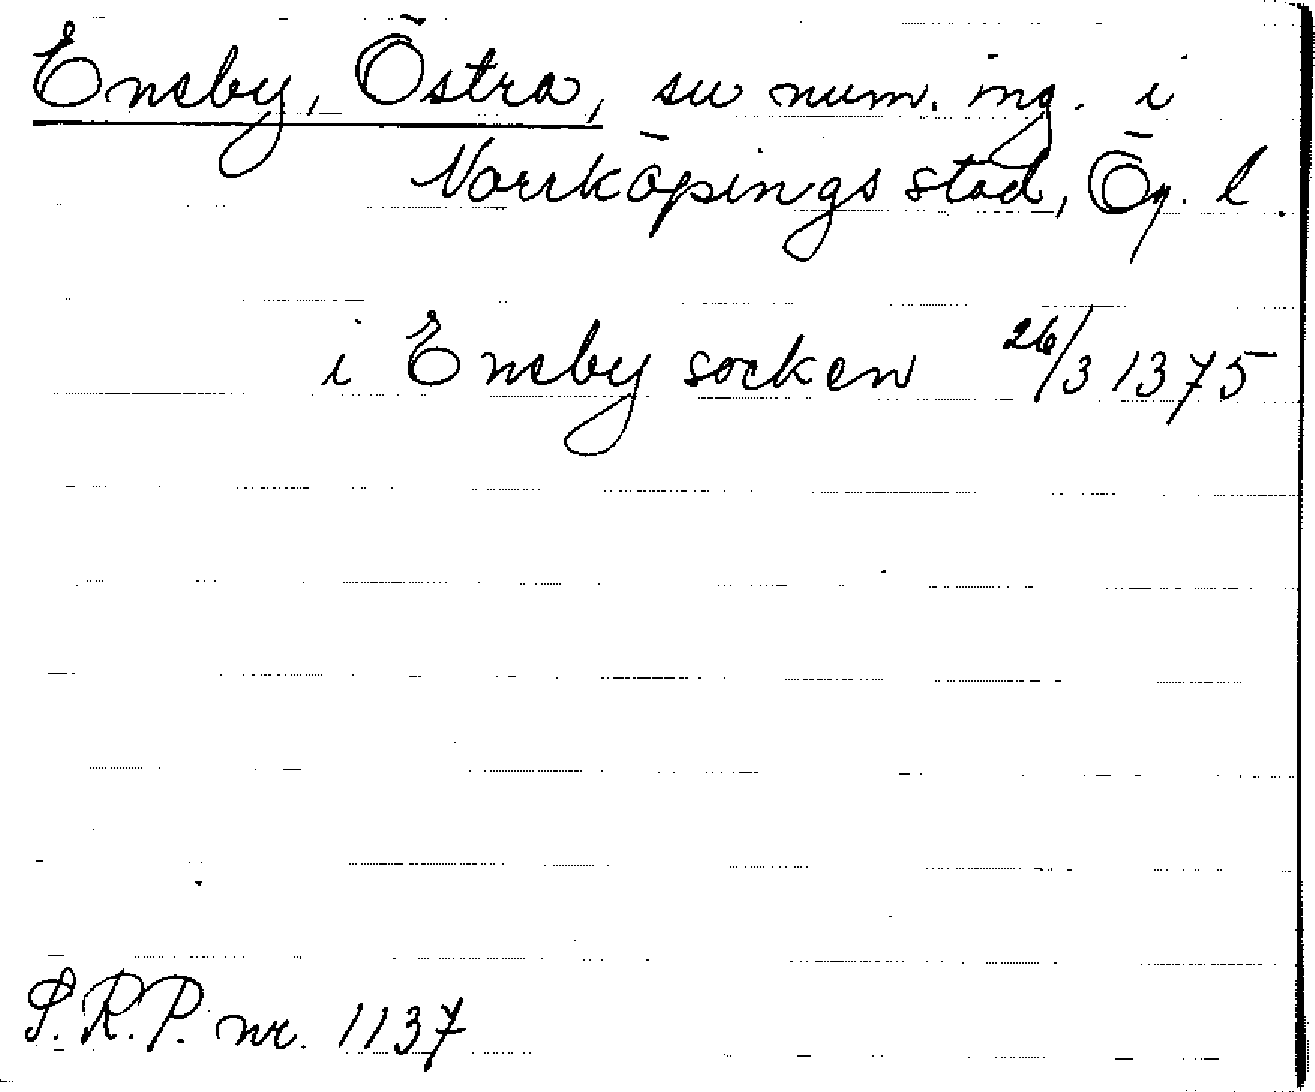 Eneby, Östra, sn num. ing. i
Norrköpings stad, Ög. l.
i Eneby socken 26/3 1375
S.R.P. nr. 1137